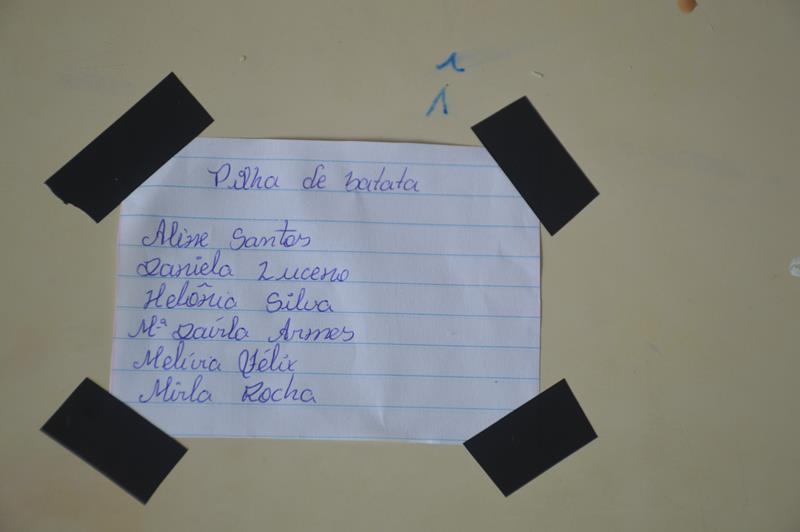 Pilha de batata
Aline Santos
Daniela Luceno
Helônia Silva
Mª Davila Armes
Melívia Félix
Mirla Rocha